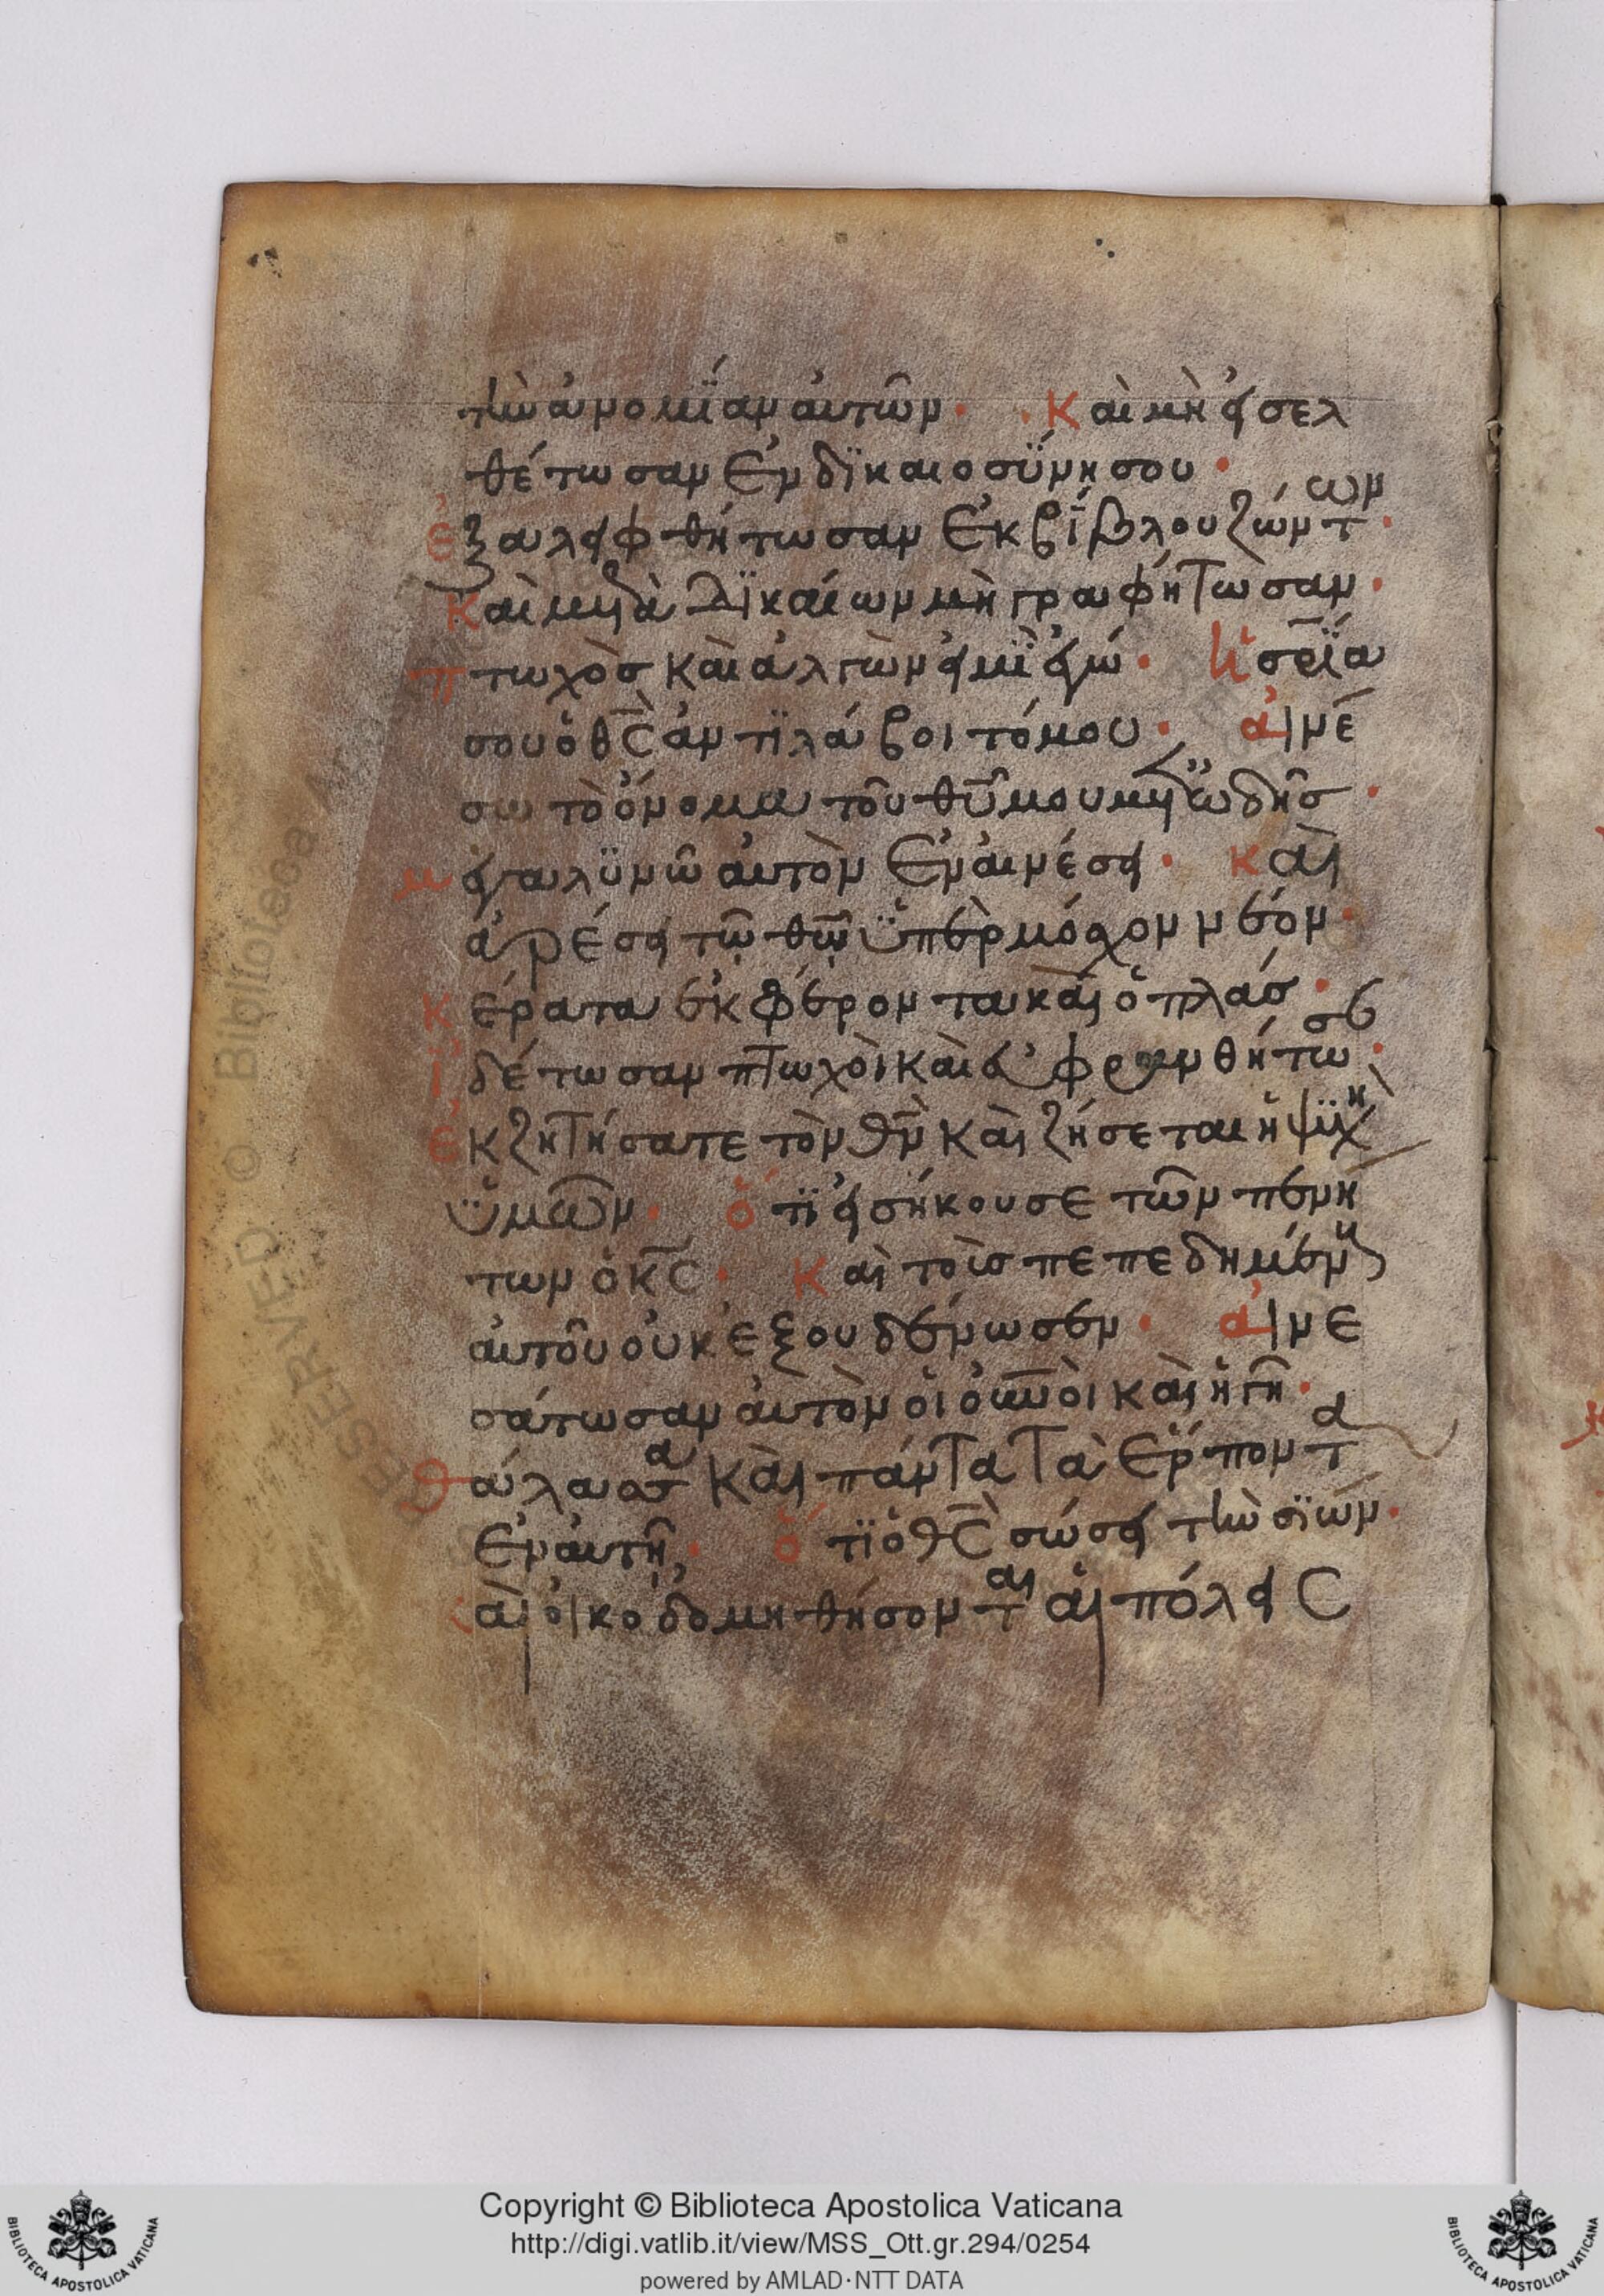 τὴν ἀνομίαν αὐτῶν· Καὶ μὴ εἰσελ
θέτωσαν ἐν δϊκαιοσύνη σου·
ἐξαλειφθήτωσαν ἐκ βίβλου ζώντων·
Καὶ μετὰ δϊκαίων μὴ γραφήτωσαν·
πτωχὸσ καὶ ἀλγῶν εἰμὶ ἐγώ· ἡ σρΐα
σου ὁ θς ἀντϊλάβοιτό μου· αἰνέ
σω τὸ ὄνομα τοῦ θυ μου μετ' ὠδῆσ·
μεγαλϋνῶ αὐτὸν ἐν αἰνέσει· καὶ
ἀρέσει τῷ θῷ ὑπὲρ μόσχον νέον·
κέρατα ἐκφέροντα καὶ ὁπλάσ·
ἰδέτωσαν πτωχοὶ καὶ εὐφρανθήτωσαν·
ἐκζητήσατε τὸν θν καὶ ζήσεται ἡ ψϋχὴ
ὑμῶν· ὅτϊ εἰσήκουσε τῶν πενή
των ὁ κς· Καὶ τοὺσ πεπεδημένους
αὐτοῦ οὐκ ἐξουδένωσεν· αἰνε
σάτωσαν αὐτὸν οἱ οὐνοὶ καὶ ἡ γῆ·
θάλασσα καὶ πάντα τὰ ἕρποντα
ἐν αὐτῆ· ὅτϊ ὁ θς σώσει τὴν σϊών·
καὶ οἰκοδομηθήσονται αἱ πόλεις
Copyright © Biblioteca Apostolica Vaticana
http://digi.vatlib.it/view/MSS_Ott.gr.294/0254
powered by AMLAD·NTT DATA
BIBLIOTECA APOSTOLICA VATICANA
BIBLIOTECA APOSTOLICA VATICANA